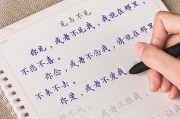 见与不见
你见，或者不见我，我就在那里，
不悲不喜。
你念，或者不念我，情就在那里，
不来不去。
你爱，或者不爱我，